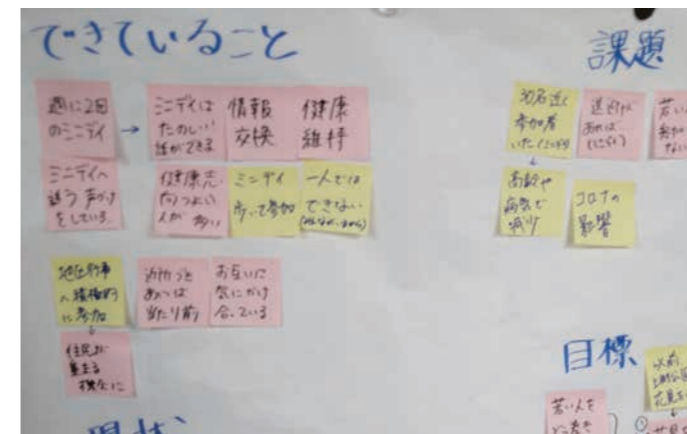 できていること
週に2回
のミニデイ
→
ミニデイは
たのしい!
話ができる
情報
交換
健康
維持
ミニデイへ
誘う声がけ
をしている
健康志
向つよい
人が多い
ミニデイ
歩いて参加
一人では
できない
地区行事
へ積極的
に参加
住民が
集まる
機会に
近所づき
あいは
当たり前
お互いに
気にかけ
合っている
課題
30名近く
参加者
いた(ミニデイ)
高齢や
病気で
減少
送迎が
あれば
コロナの
影響
若い
参加
ない
目標
若い人を
現状